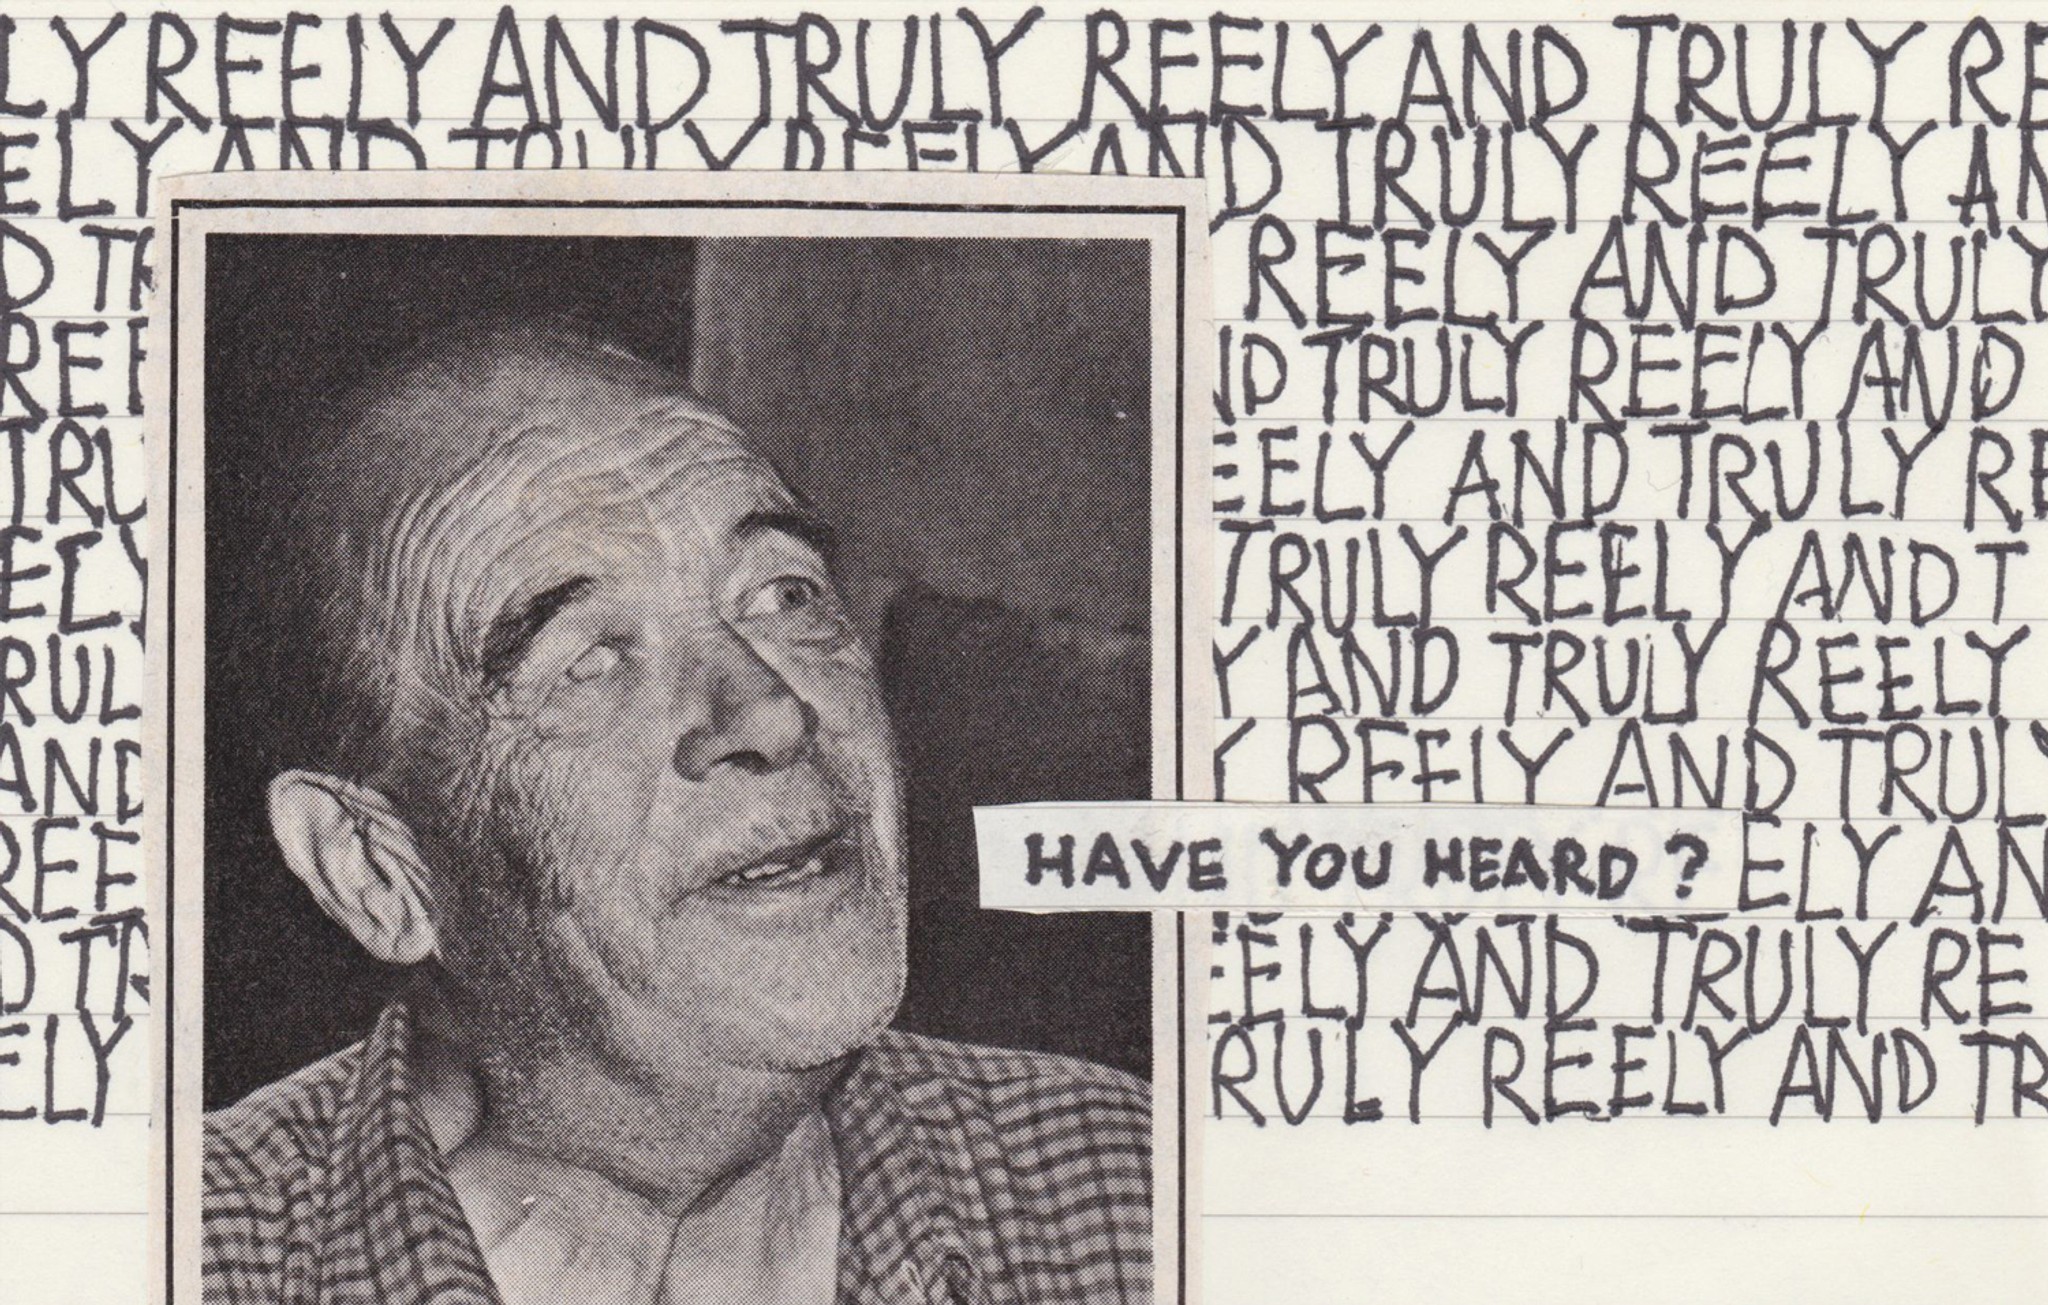 LY REELY AND TRULY REELY AND TRULY RE
ELY AND TRULY REELY AND TRULY REELY AN
D TR REELY AND TRULY
REE ND TRULY REELY AND
TRU EELY AND TRULY RE
ELY TRULY REELY AND T
RUL Y AND TRULY REELY
AND Y REELY AND TRULY
REE ELY AN
HAVE YOU HEARD?
D TR EELY AND TRULY RE
ELY RULY REELY AND TR